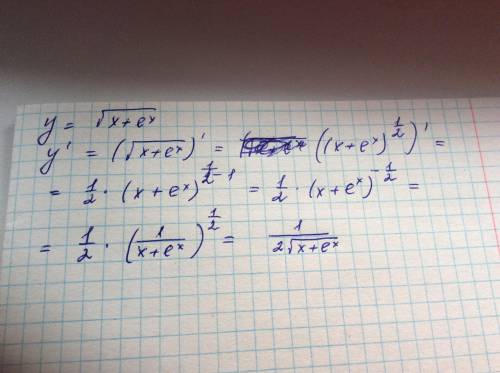 y = √(x+eˣ)
y' = (√(x+eˣ))' = ((x+eˣ)^(1/2))' =
= 1/2 · (x+eˣ)^(1/2-1) = 1/2 · (x+eˣ)^(-1/2) =
= 1/2 · (1/(x+eˣ))^(1/2) = 1/(2√(x+eˣ))